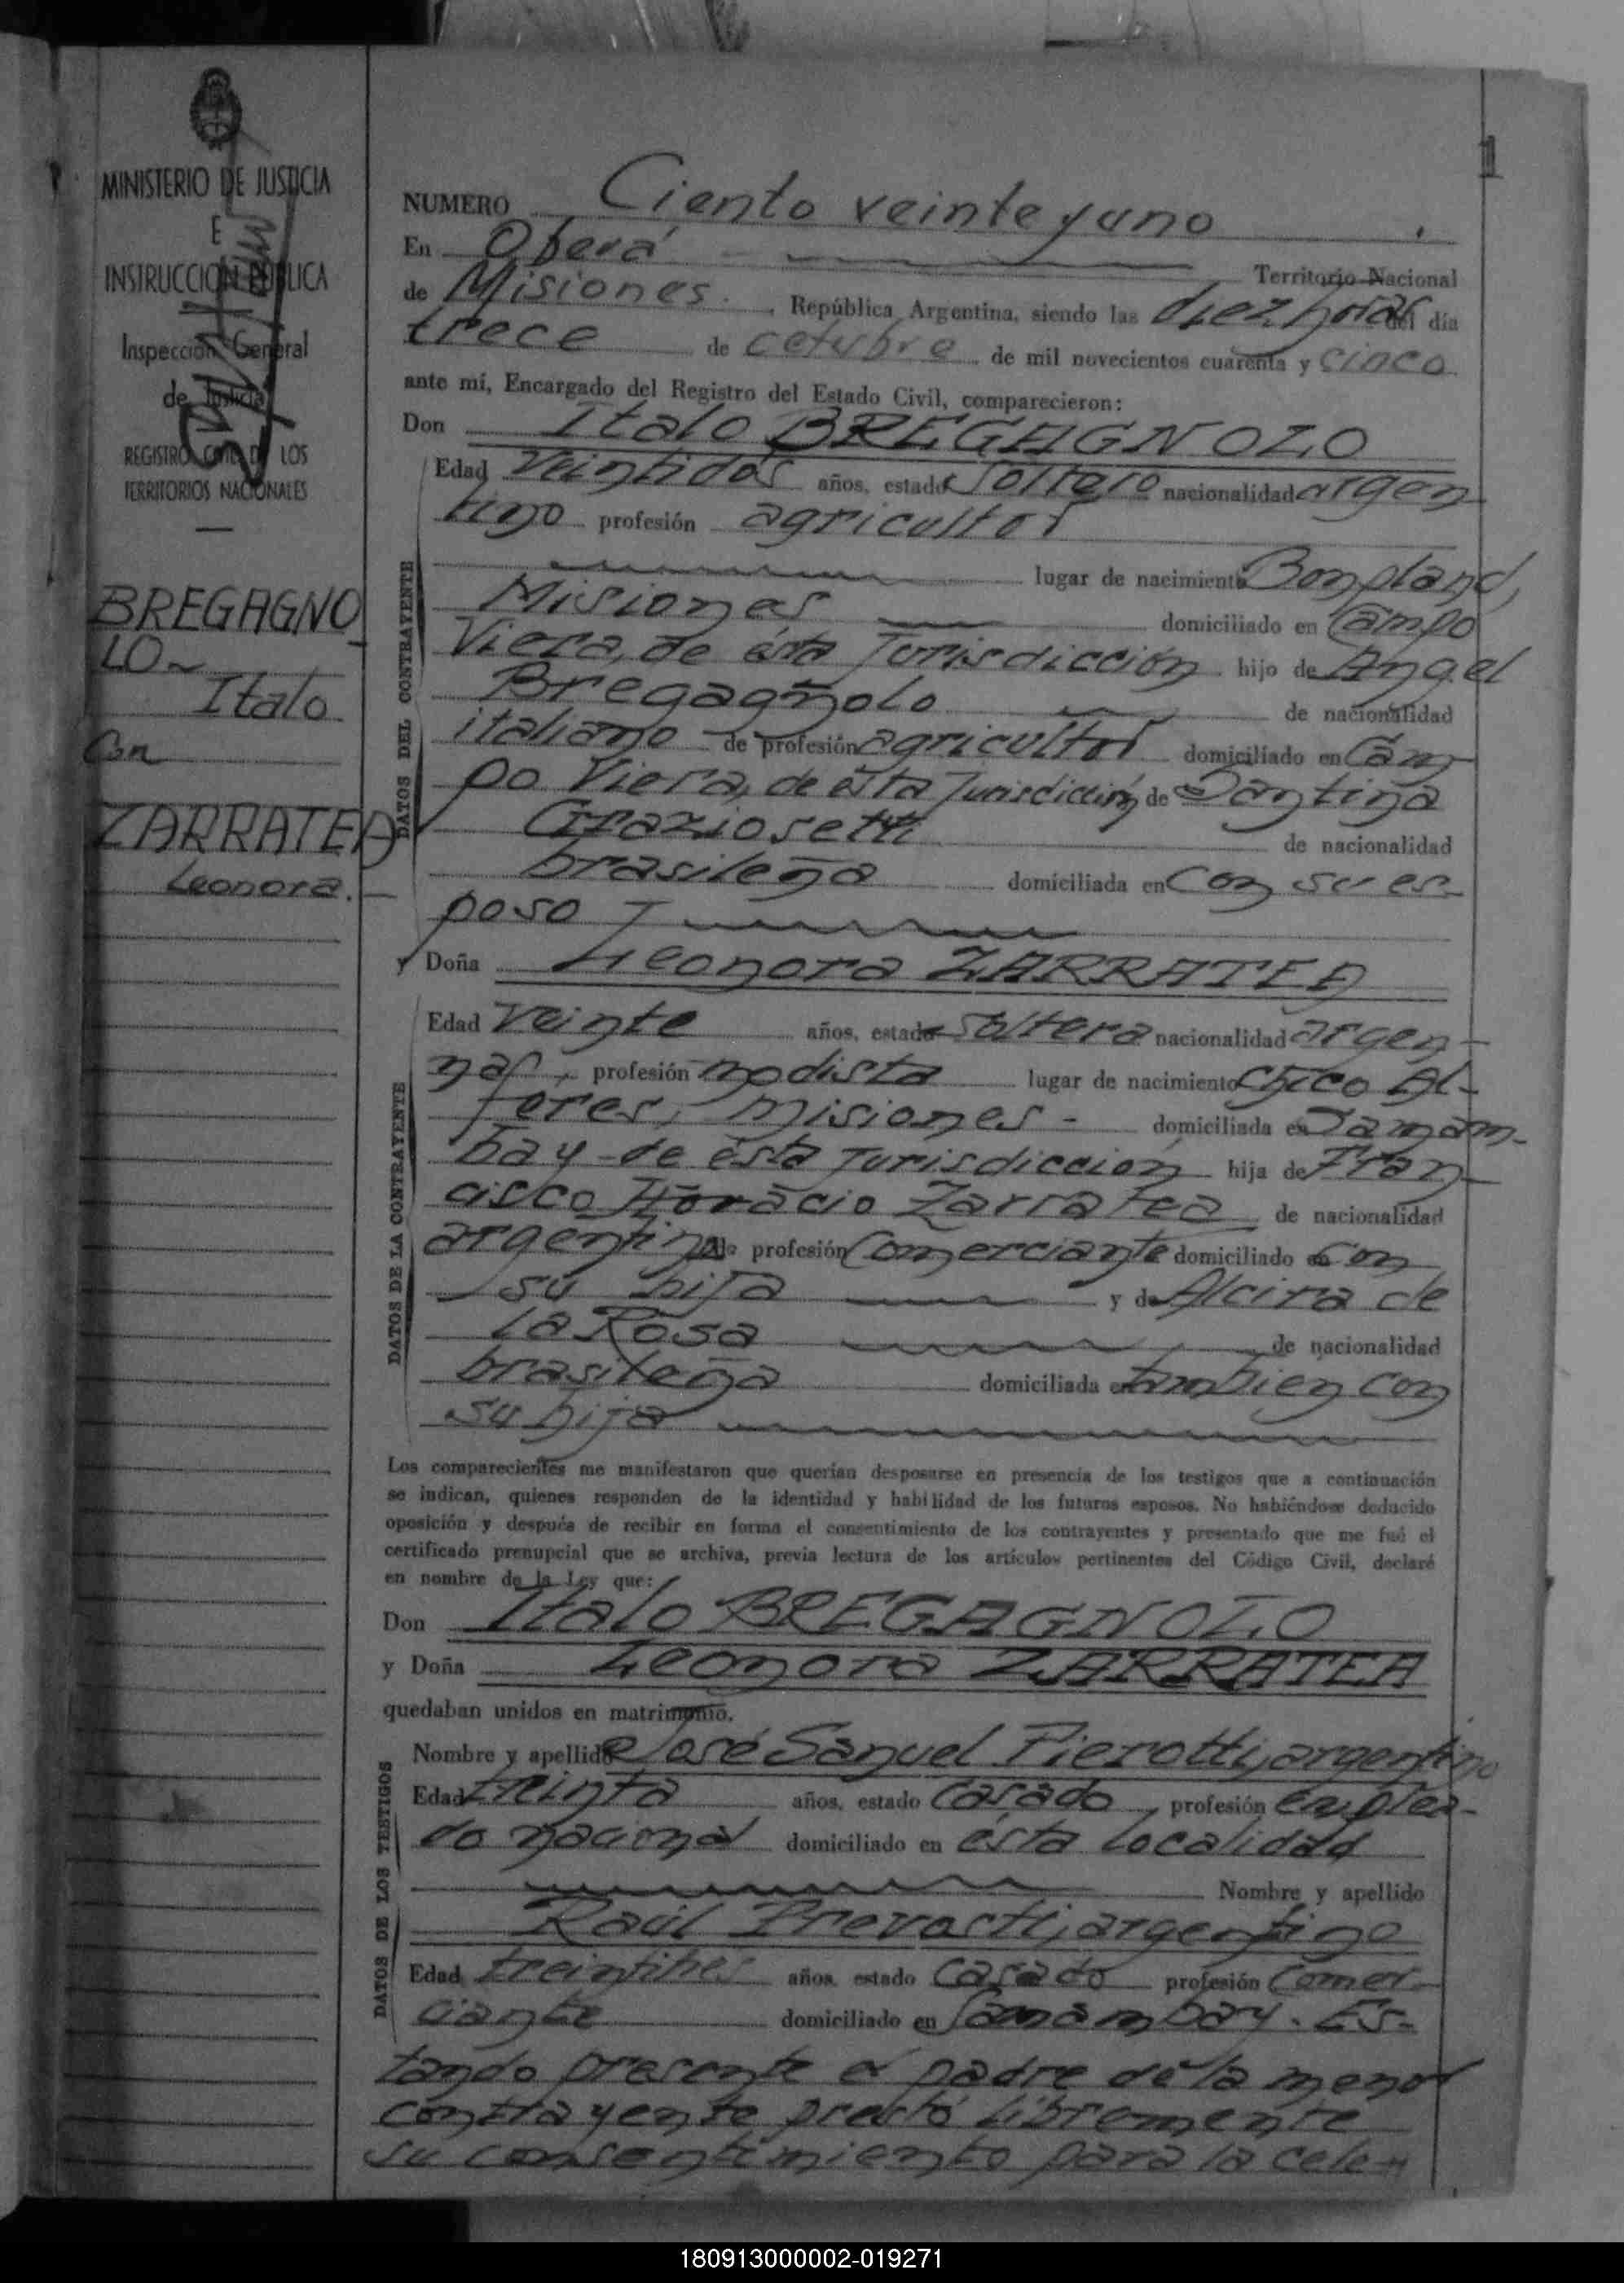 MINISTERIO DE JUSTICIA
E
INSTRUCCION PUBLICA
Inspección General
de Justicia
REGISTRO CIVIL DE LOS
TERRITORIOS NACIONALES
BREGAGNO
LO
Italo
Con
ZARRATEA
Leonora.
1
NUMERO Ciento veinteyuno
En Oberá Territorio Nacional
de Misiones. República Argentina, siendo las diez horas del día
trece de octubre de mil novecientos cuarenta y cinco
ante mí, Encargado del Registro del Estado Civil, comparecieron:
Don Italo BREGAGNOLO
DATOS DEL CONTRAYENTE
Edad veintidós años, estado soltero nacionalidad argen
tino profesión agricultor
lugar de nacimiento Bonpland,
Misiones domiciliado en Campo
Viera, de ésta Jurisdicción hijo de Angel
Bregagñolo de nacionalidad
italiano de profesión agricultor domiciliado en Cam
po Viera, de ésta Jurisdicción y de Santina
Graziosetti de nacionalidad
brasileña domiciliada en con su es-
poso
y Doña Leonora ZARRATEA
DATOS DE LA CONTRAYENTE
Edad veinte años, estado soltera nacionalidad argen-
profesión modista lugar de nacimiento Chico Al-
feres, Misiones - domiciliada en Samam-
bay - de ésta Jurisdicción hija de Fran-
cisco Horacio Zarratea de nacionalidad
argentina de profesión Comerciante domiciliado en con
su hija y de Alcira de
la Rosa de nacionalidad
brasileña domiciliada en tambien con
su hija
Los comparecientes me manifestaron que querían desposarse en presencia de los testigos que a continuación
se indican, quienes responden de la identidad y habilidad de los futuros esposos. No habiéndose deducido
oposición y después de recibir en forma el consentimiento de los contrayentes y presentado que me fué el
certificado prenupcial que se archiva, previa lectura de los artículos pertinentes del Código Civil, declaré
en nombre de la Ley que:
Don Italo BREGAGNOLO
y Doña Leonora ZARRATEA
quedaban unidos en matrimonio.
DATOS DE LOS TESTIGOS
Nombre y apellido José Sanuel Pierotti, argentino
Edad treinta años, estado casado, profesión emplea-
do nacional domiciliado en ésta localidad
Nombre y apellido
Raúl Prevosti, argentino
Edad treintitres años, estado casado profesión Comer-
ciante domiciliado en Samambay. Es-
tando presente el padre de la menor
contrayente prestó libremente
su consentimiento para la cele-
180913000002-019271